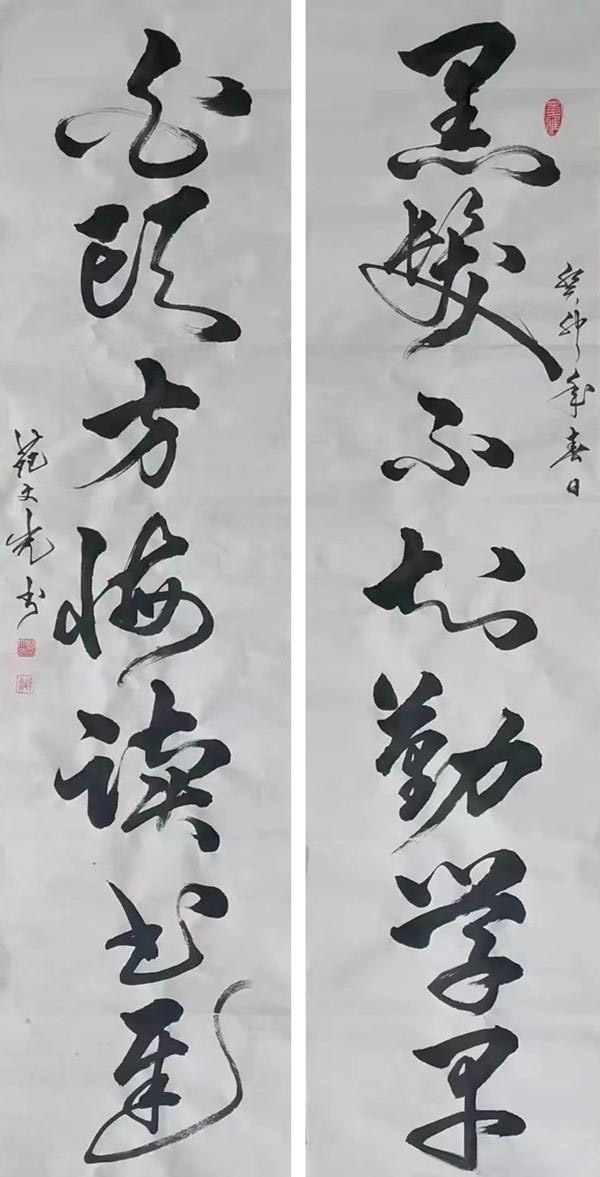 黑髪不知勤学早
癸卯年春日
白頭方悔读书遲
范文光书